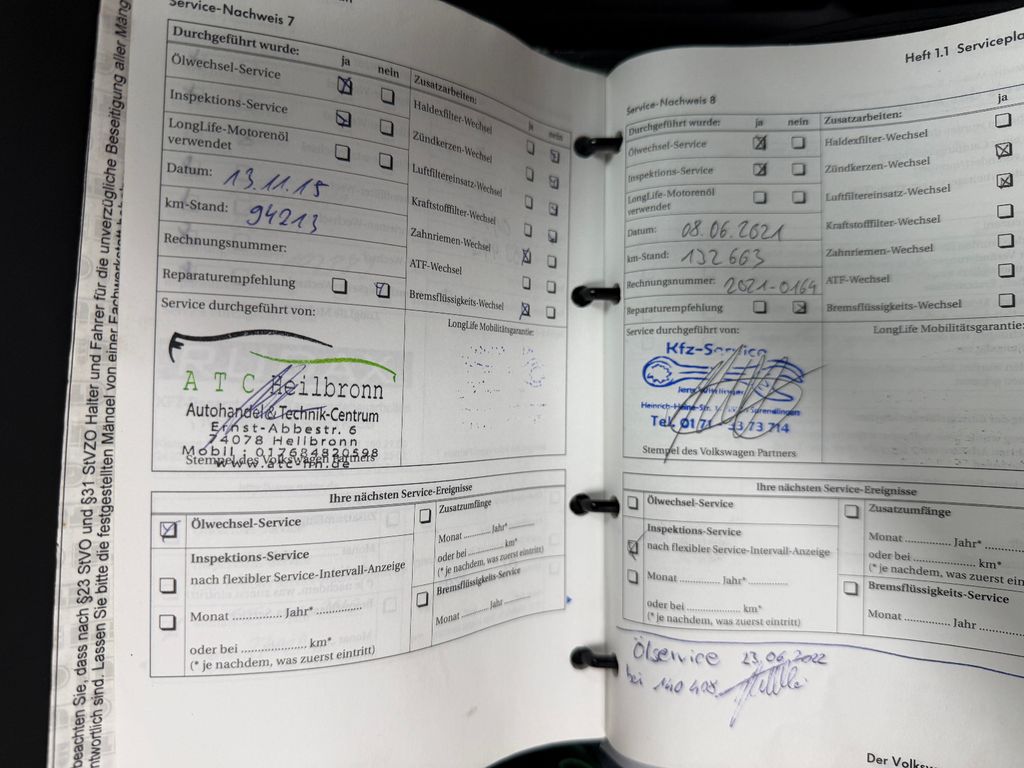 beachten Sie, dass nach §23 StVO und §31 StVZO Halter und Fahrer für die unverzügliche Beseitigung aller Mäng
ntwortlich sind. Lassen Sie bitte die festgestellten Mängel von einer Fachwerkstatt
Service-Nachweis 7
Durchgeführt wurde:
ja
nein
Ölwechsel-Service
Inspektions-Service
LongLife-Motorenöl
verwendet
Datum: 13.11.15
km-Stand: 94213
Rechnungsnummer:
Reparaturempfehlung
Service durchgeführt von:
Zusatzarbeiten:
ja
nein
Haldexfilter-Wechsel
Zündkerzen-Wechsel
Luftfiltereinsatz-Wechsel
Kraftstofffilter-Wechsel
Zahnriemen-Wechsel
ATF-Wechsel
Bremsflüssigkeits-Wechsel
LongLife Mobilitätsgarantie:
ATC Heilbronn
Autohandel & Technik-Centrum
Ernst-Abbestr. 6
74078 Heilbronn
Mobil: 017684820598
Stempel des Volkswagen Partners
www.atc-hn.de
Ihre nächsten Service-Ereignisse
Ölwechsel-Service
Inspektions-Service
nach flexibler Service-Intervall-Anzeige
Monat ............... Jahr* ...............
oder bei ...................... km*
(* je nachdem, was zuerst eintritt)
Zusatzumfänge
Monat ............ Jahr* ............
oder bei ................ km*
(* je nachdem, was zuerst eintritt)
Bremsflüssigkeits-Service
Monat ............ Jahr ............
Heft 1.1 Servicepla
Service-Nachweis 8
Durchgeführt wurde:
ja
nein
Ölwechsel-Service
Inspektions-Service
LongLife-Motorenöl
verwendet
Datum: 08.06.2021
km-Stand: 132663
Rechnungsnummer: 2021-0164
Reparaturempfehlung
Service durchgeführt von:
Zusatzarbeiten:
ja
Haldexfilter-Wechsel
Zündkerzen-Wechsel
Luftfiltereinsatz-Wechsel
Kraftstofffilter-Wechsel
Zahnriemen-Wechsel
ATF-Wechsel
Bremsflüssigkeits-Wechsel
LongLife Mobilitätsgarantie:
Kfz-Service
Heinrich-Heine-Str.
Tel. 0171 73 714
Stempel des Volkswagen Partners
Ihre nächsten Service-Ereignisse
Ölwechsel-Service
Inspektions-Service
nach flexibler Service-Intervall-Anzeige
Monat ............... Jahr* ...............
oder bei ...................... km*
(* je nachdem, was zuerst eintritt)
Zusatzumfänge
Monat ............... Jahr* ...............
oder bei ................ km*
(* je nachdem, was zuerst eintri
Bremsflüssigkeits-Service
Monat ............... Jahr ...............
Ölservice 23.06.2022
bei 140 408
Der Volksw